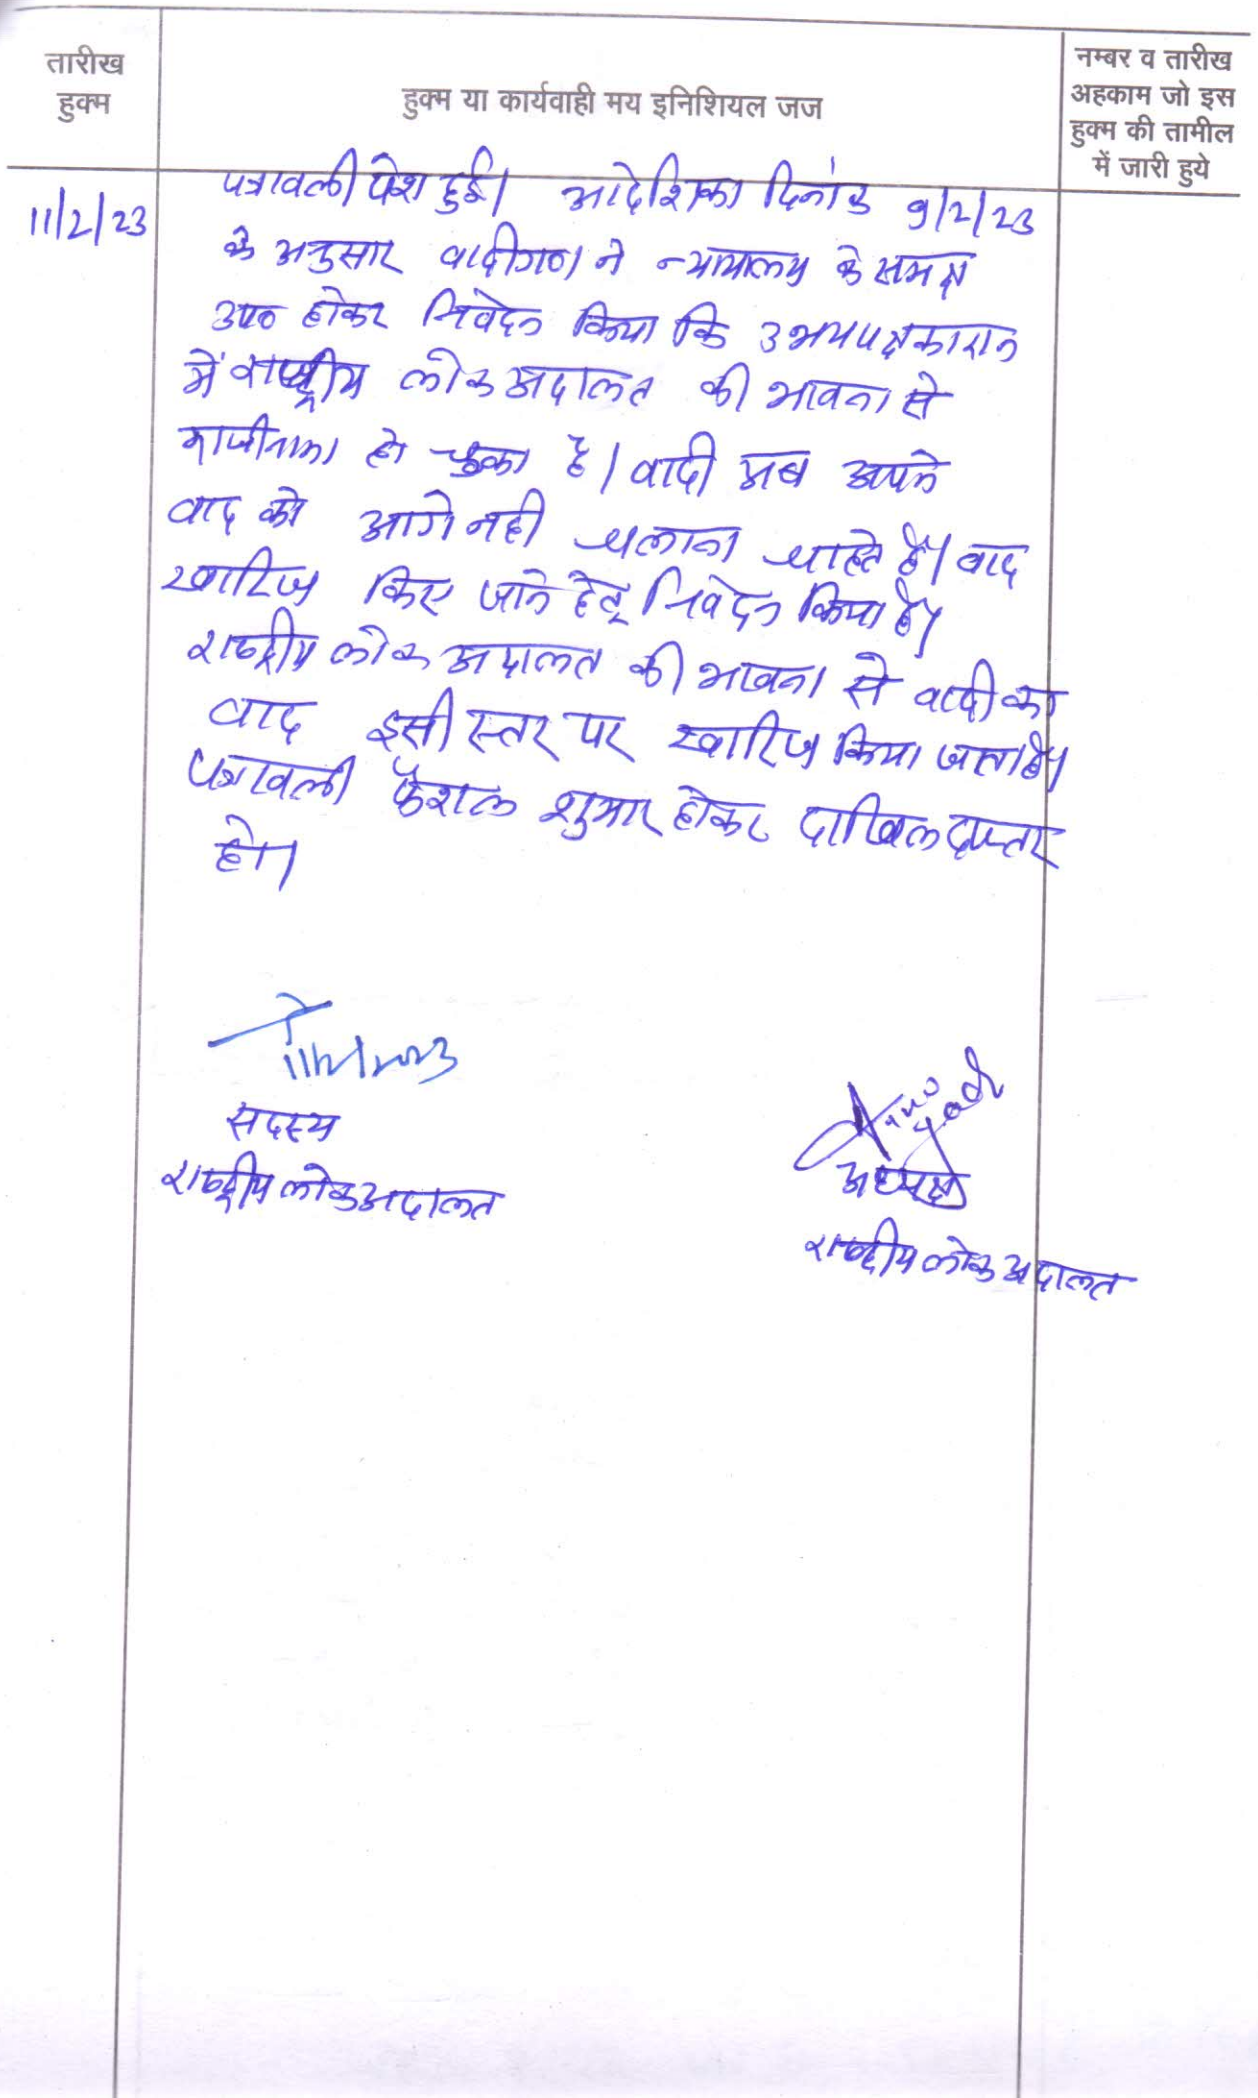 तारीख
हुक्म
हुक्म या कार्यवाही मय इनिशियल जज
नम्बर व तारीख
अहकाम जो इस
हुक्म की तामील
में जारी हुये
11/2/23
पत्रावली पेश हुई। आदेशिका दिनांक 9/2/23
के अनुसार वादीगण ने न्यायालय के समक्ष
उप० होकर निवेदन किया कि उभयपक्षकारान
में राष्ट्रीय लोक अदालत की भावना से
राजीनामा हो चुका है। वादी अब अपने
वाद को आगे नही चलाना चाहते है। वाद
खारिज किए जाने हेतू निवेदन किया है।
राष्ट्रीय लोक अदालत की भावना से वादी का
वाद इसी स्तर पर खारिज किया जाता है।
पत्रावली फैशल शुमार होकर दाखिल दफ्तर
हो।
11/2/2023
सदस्य
राष्ट्रीय लोक अदालत
अध्यक्ष
राष्ट्रीय लोक अदालत